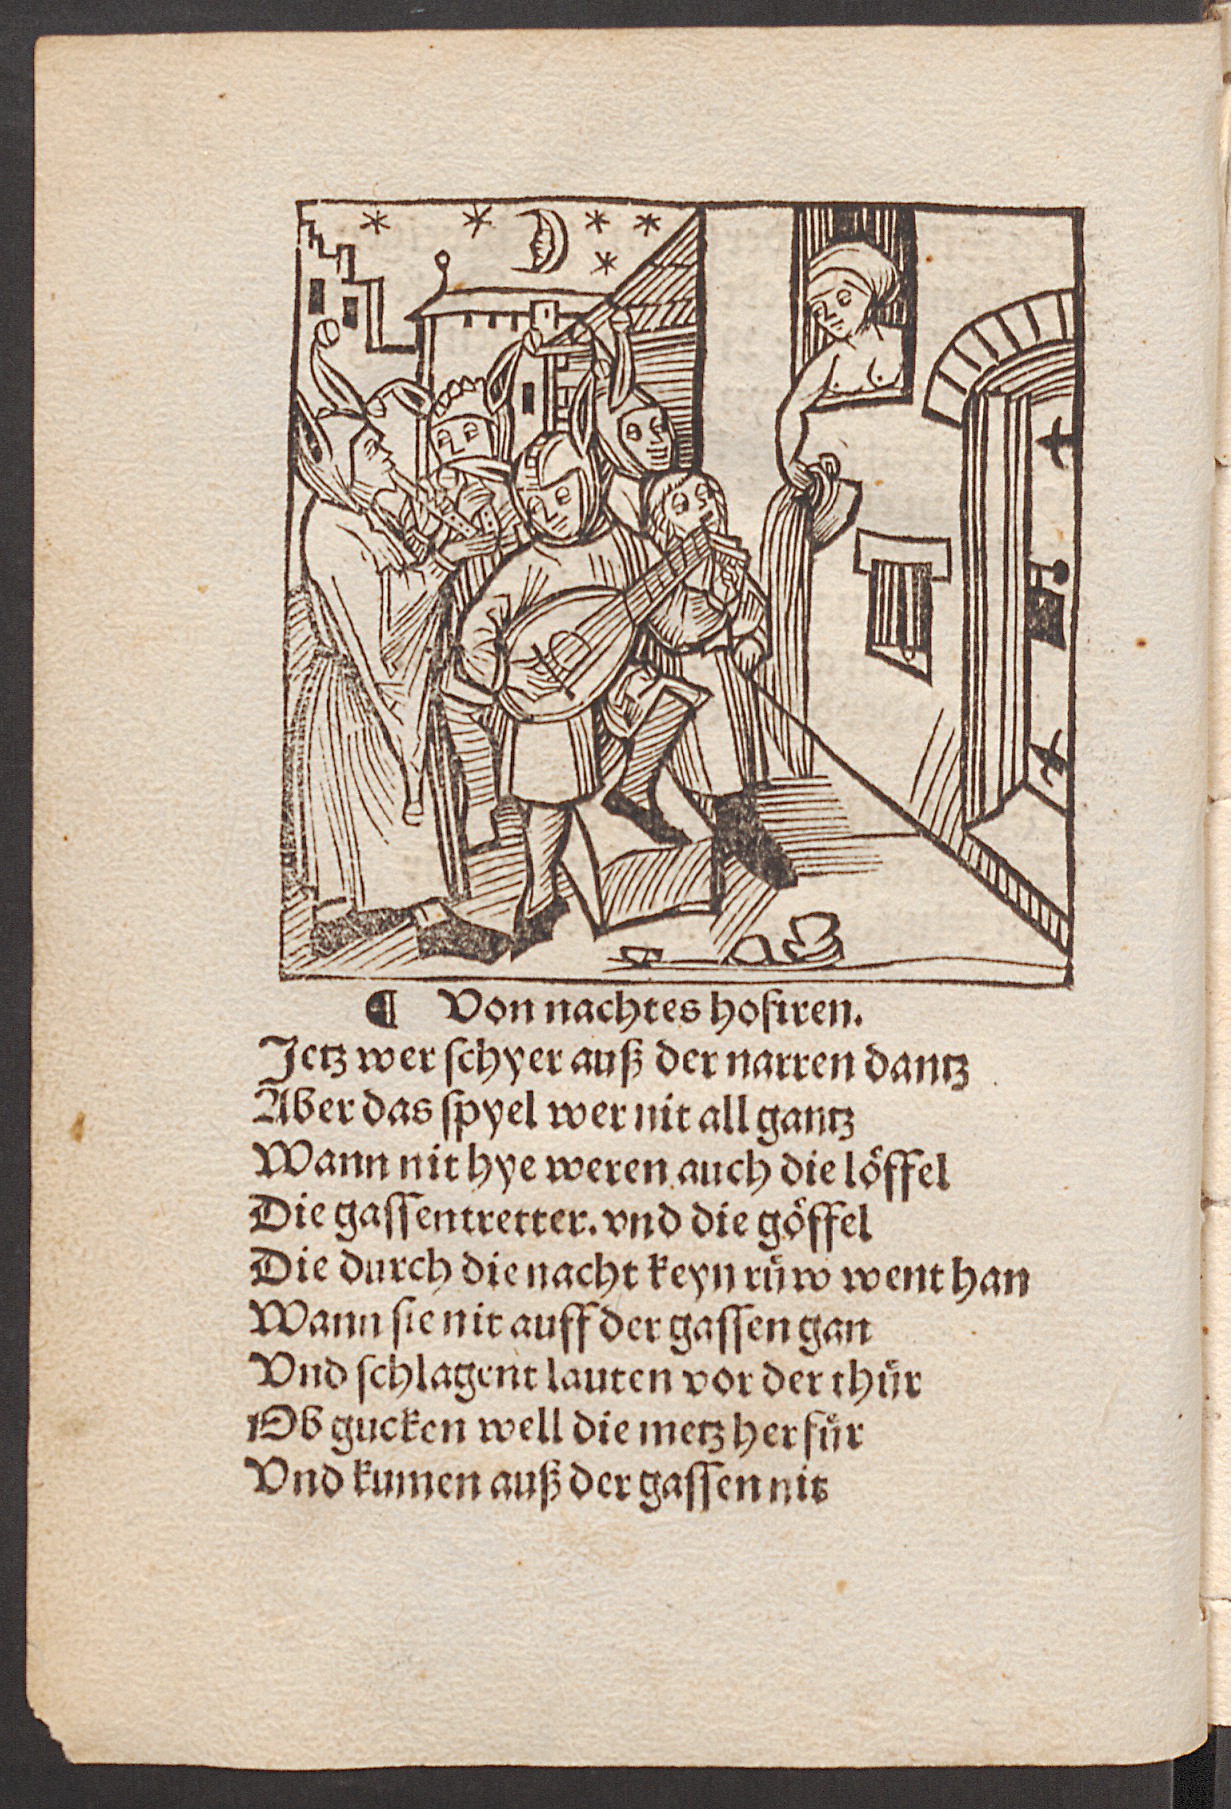 ¶ Von nachtes hofiren.
Jetz wer ſchyer auß der narren dantz
Aber das ſpyel wer nit all gantz
Wann nit hye weren auch die loͤffel
Die gaſſentretter. vnd die goͤffel
Die durch die nacht keyn ruͤw went han
Wann ſie nit auff der gaſſen gan
Vnd ſchlagent lauten vor der thuͤr
Ob gucken well die metz her fuͤr
Vnd kumen auß der gaſſen nit